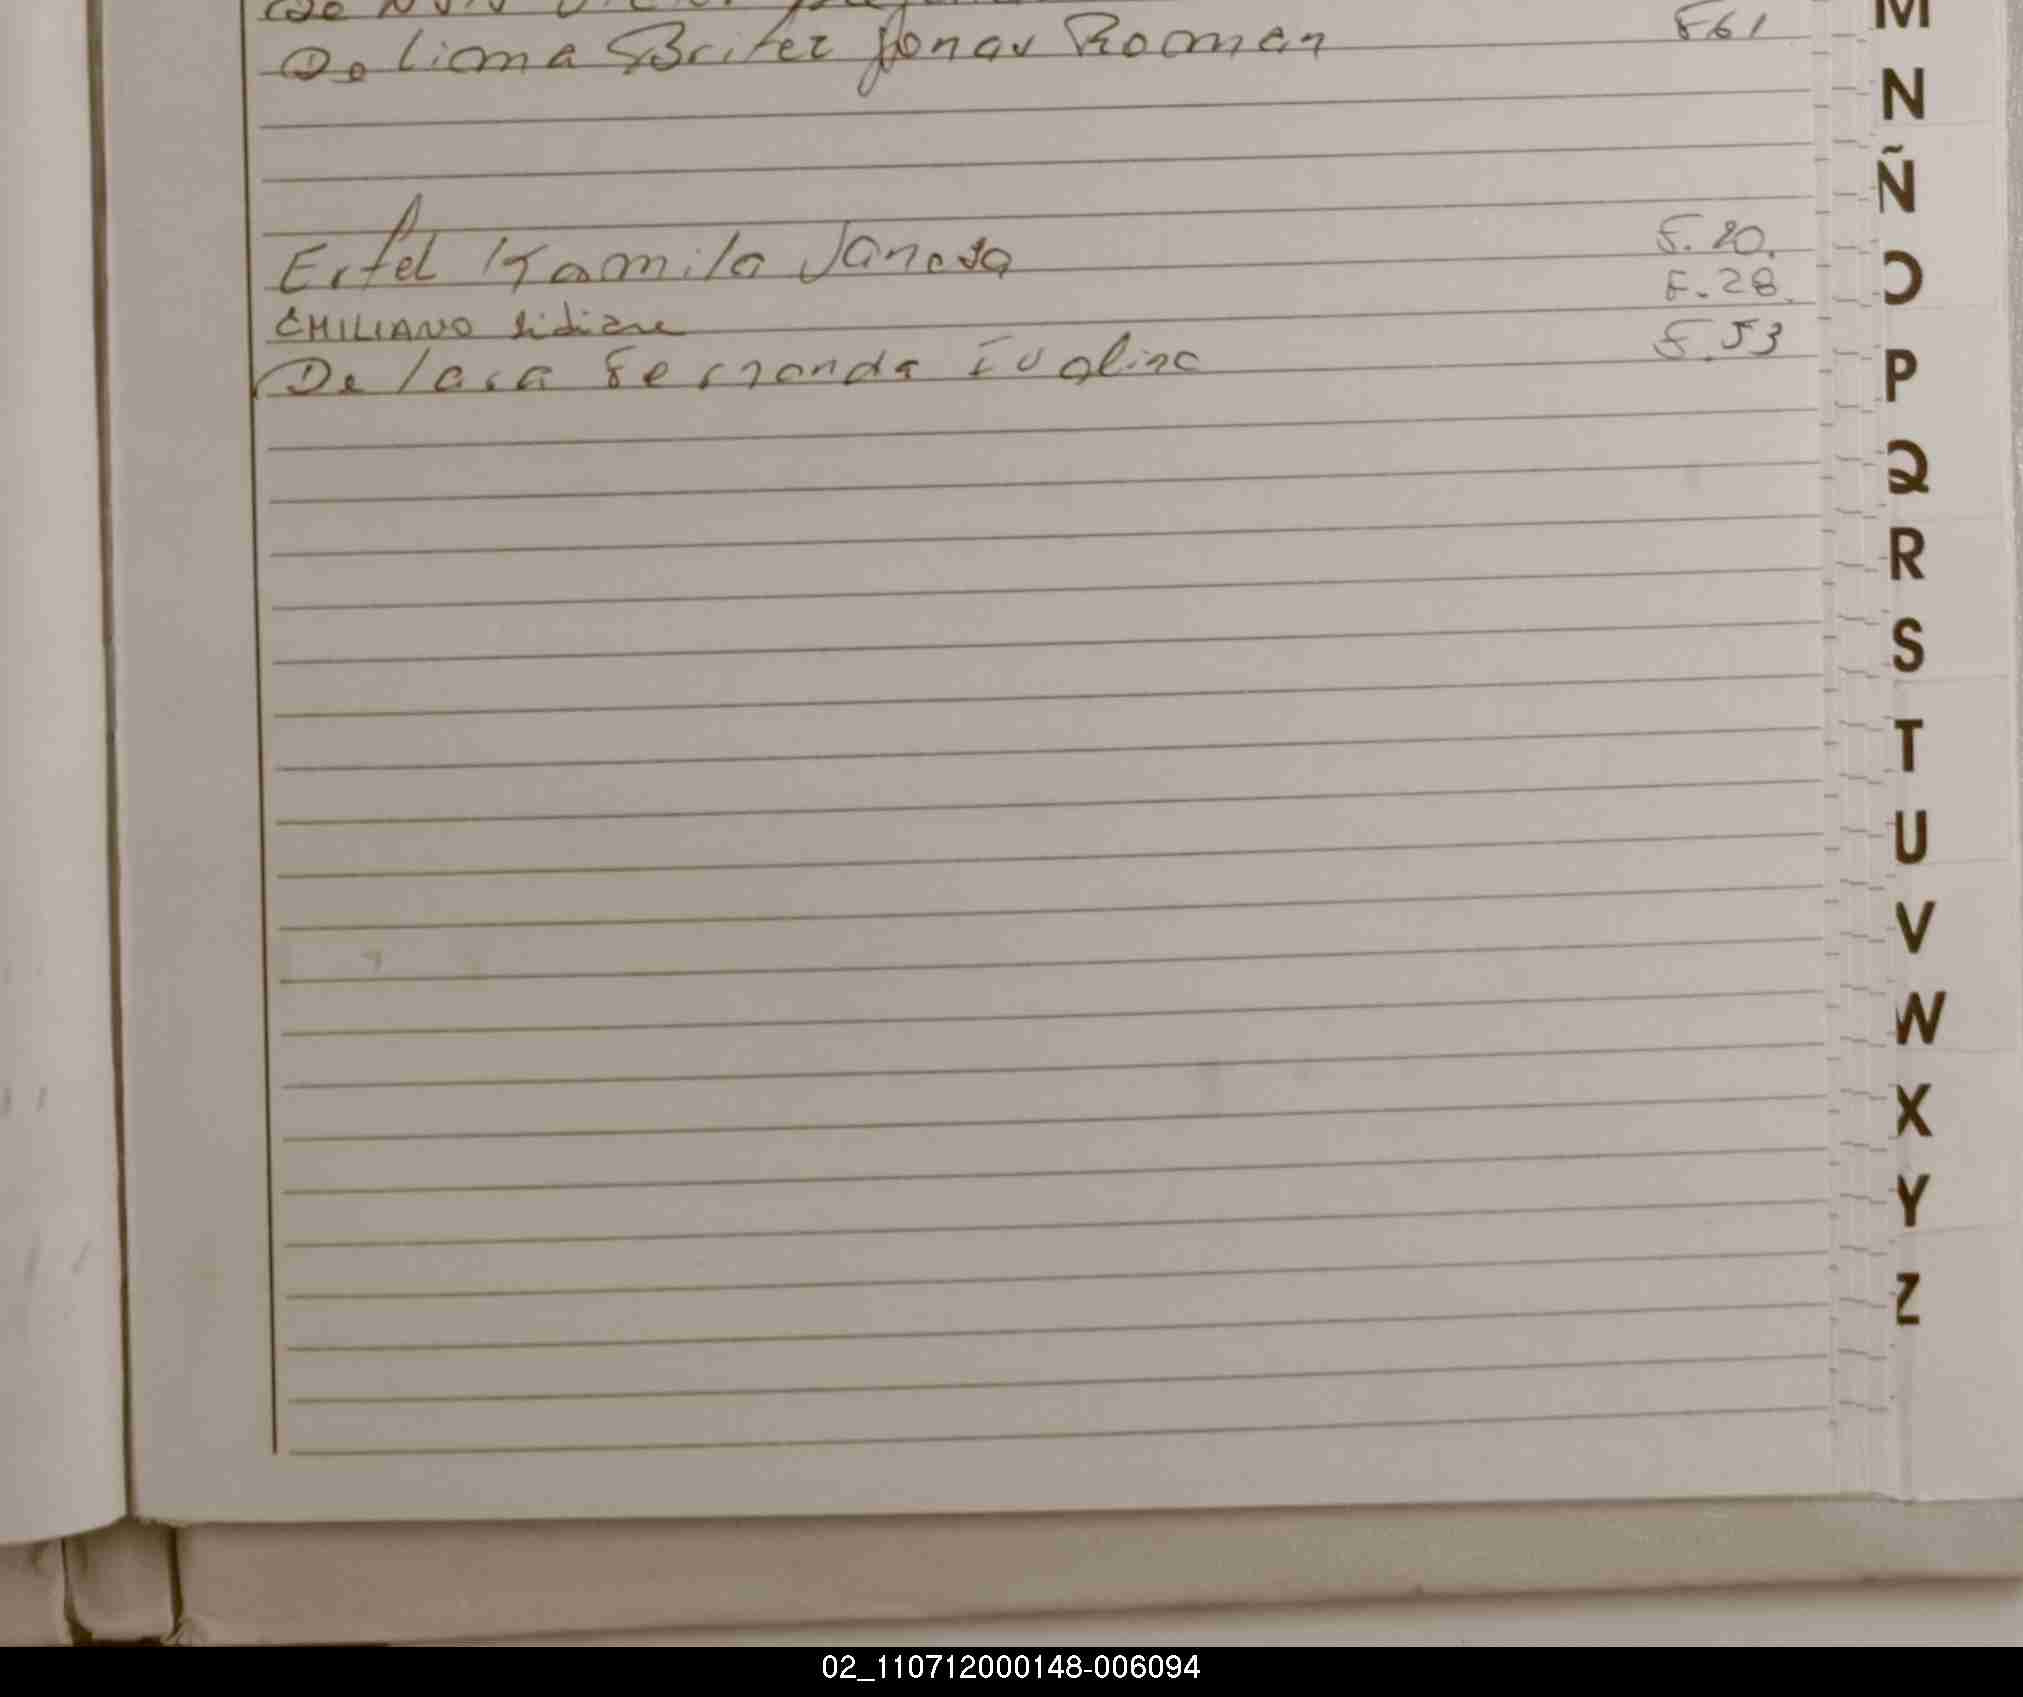 De Lima Britez Jonas Roman F61
Ertel Kamila Janesa F. 20.
EMILIANO Lidiane F. 28.
De lara Fernanda Evelina F. 53
M
N
Ñ
O
P
Q
R
S
T
U
V
W
X
Y
Z
02_110712000148-006094